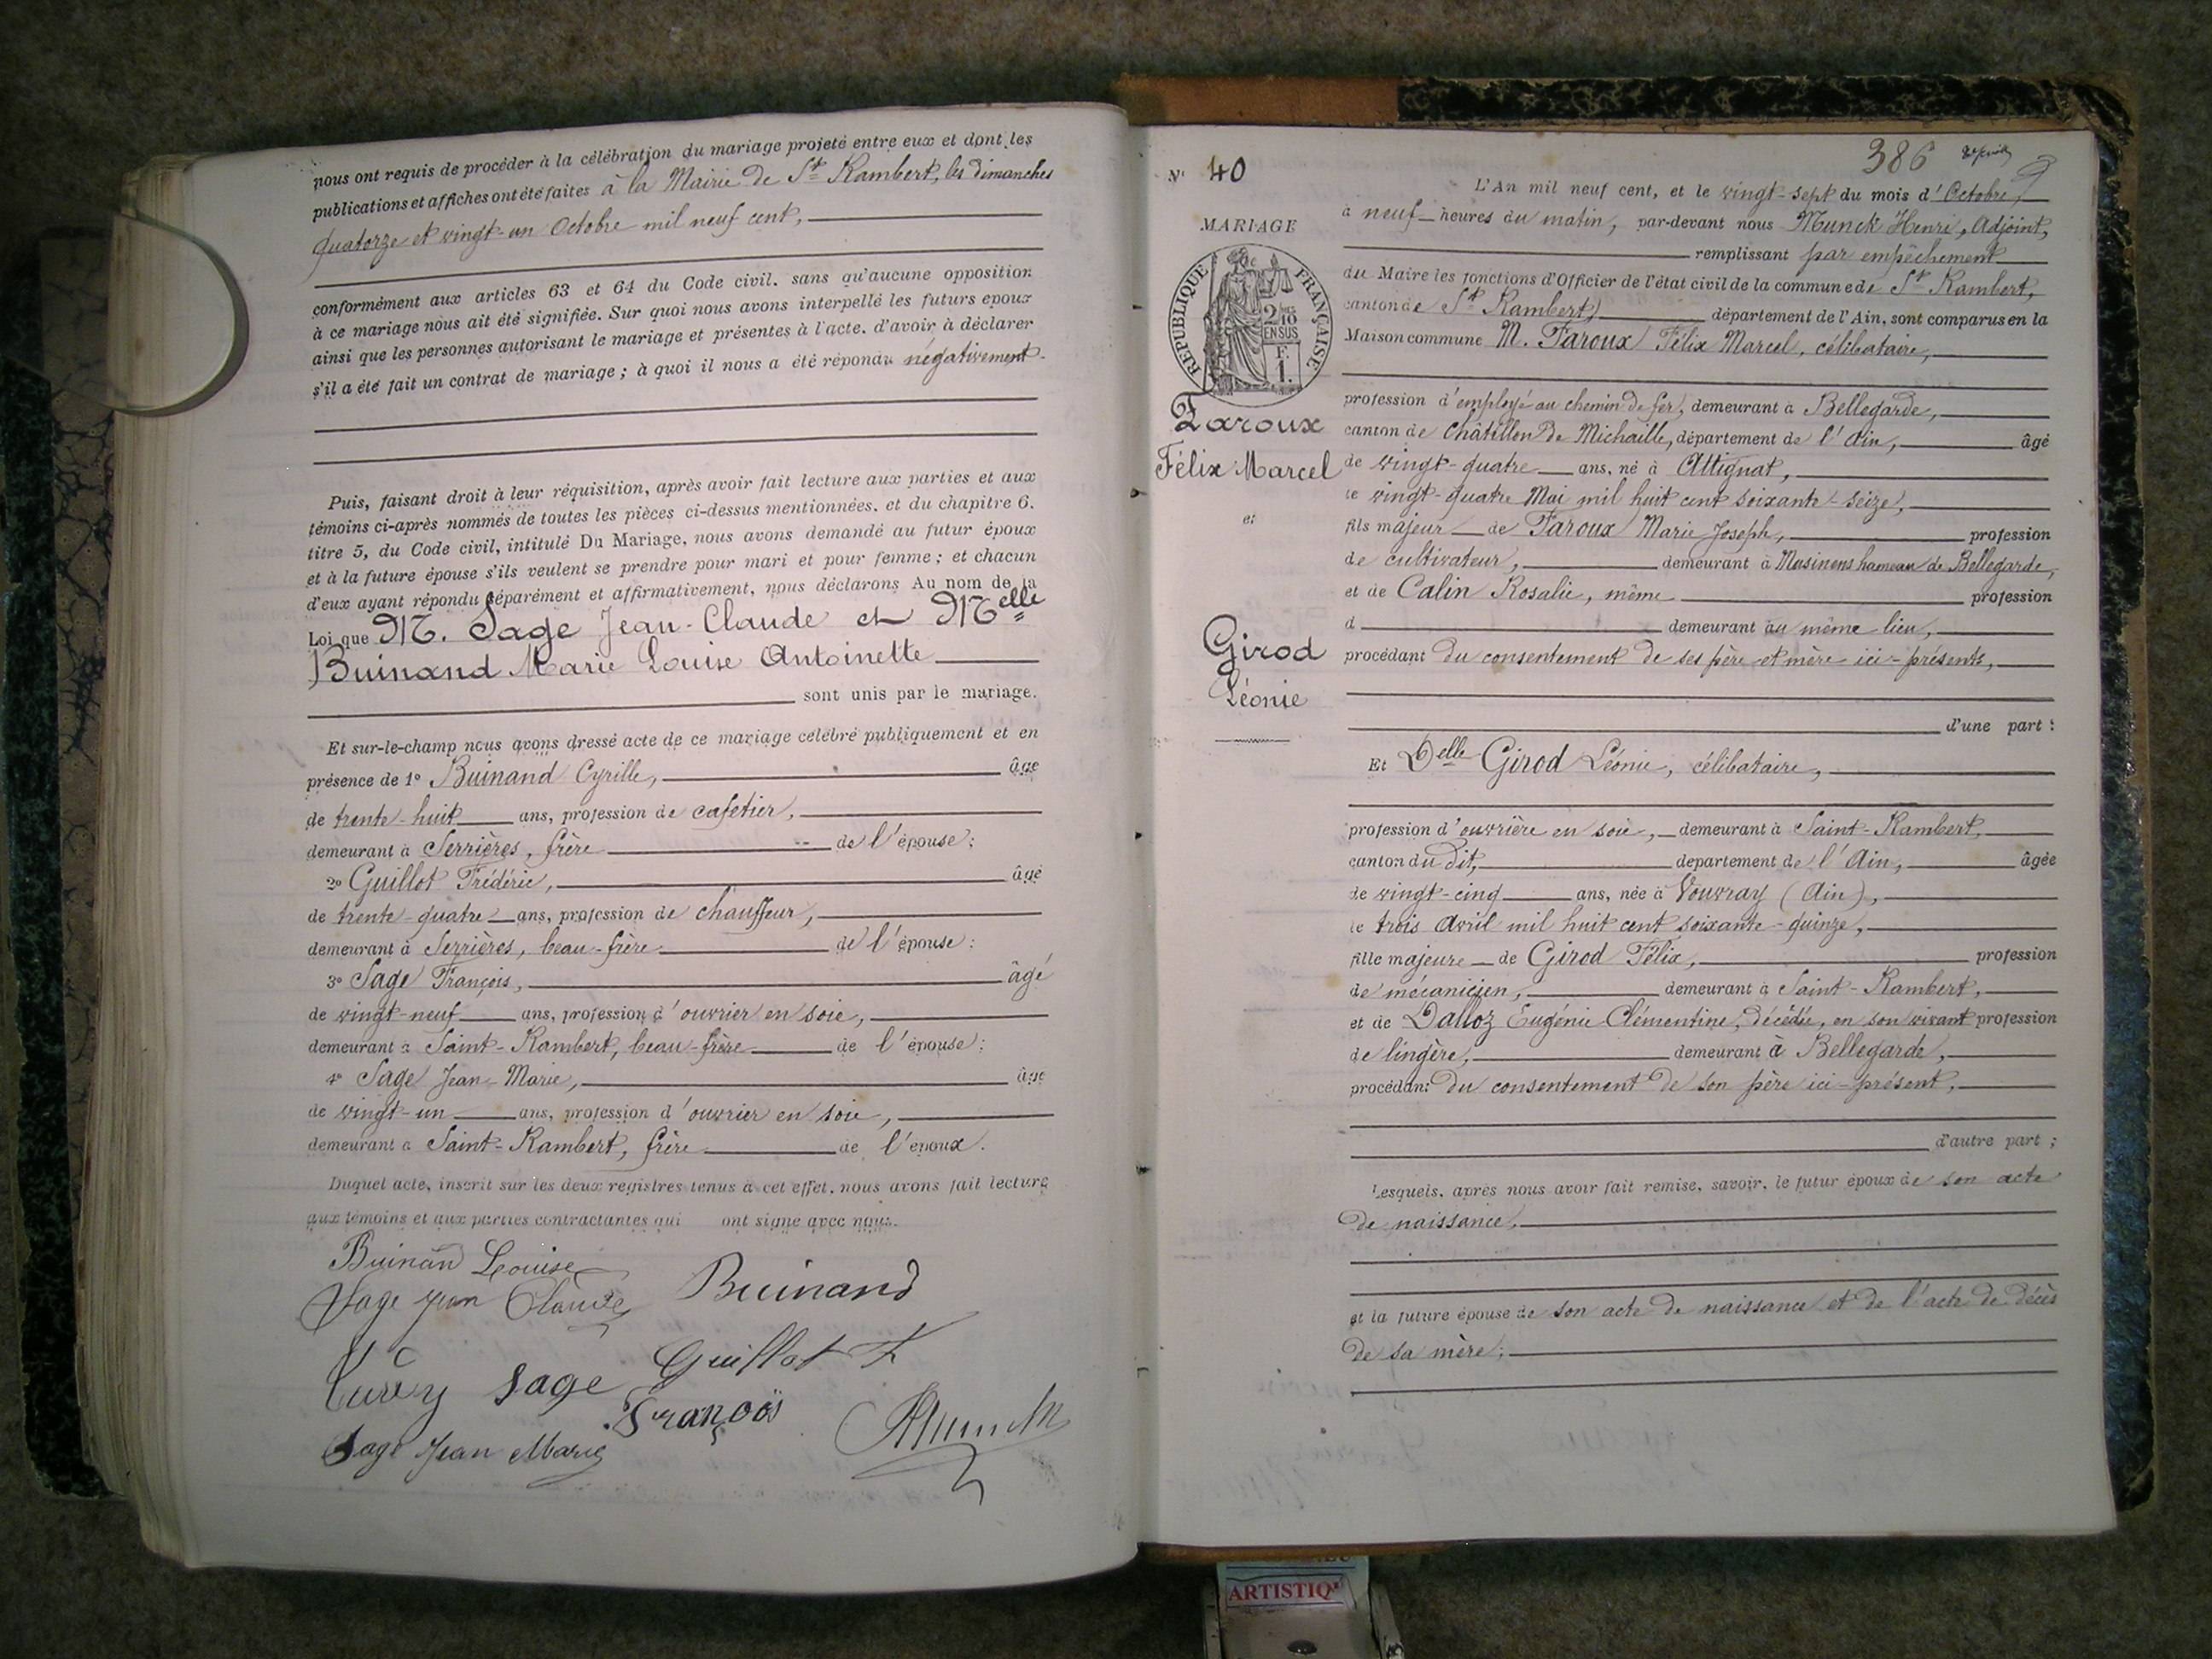 nous ont requis de procéder à la célébration du mariage projeté entre eux et dont les
publications et affiches ont été faites à la Mairie de St Rambert, les dimanches
quatorze et vingt-un Octobre mil neuf cent,
conformément aux articles 63 et 64 du Code civil, sans qu'aucune opposition
à ce mariage nous ait été signifiée. Sur quoi nous avons interpellé les futurs époux
ainsi que les personnes autorisant le mariage et présentes à l'acte, d'avoir à déclarer
s'il a été fait un contrat de mariage ; à quoi il nous a été répondu négativement.
Puis, faisant droit à leur réquisition, après avoir fait lecture aux parties et aux
témoins ci-après nommés de toutes les pièces ci-dessus mentionnées, et du chapitre 6.
titre 5, du Code civil, intitulé Du Mariage, nous avons demandé au futur époux
et à la future épouse s'ils veulent se prendre pour mari et pour femme ; et chacun
d'eux ayant répondu séparément et affirmativement, nous déclarons Au nom de la
Loi que M. Sage Jean-Claude et Melle
Buinand Marie Louise Antoinette
sont unis par le mariage.
Et sur-le-champ nous avons dressé acte de ce mariage célébré publiquement et en
présence de 1° Buinand Cyrille, âgé
de trente-huit ans, profession de cafetier,
demeurant à Serrières, frère de l'épouse ;
2° Guillot Frédéric, âgé
de trente-quatre ans, profession de chauffeur,
demeurant à Serrières, beau-frère de l'épouse ;
3° Sage François, âgé
de vingt-neuf ans, profession d'ouvrier en soie,
demeurant à Saint-Rambert, beau-frère de l'épouse ;
4° Sage Jean-Marie, âgé
de vingt-un ans, profession d'ouvrier en soie,
demeurant à Saint-Rambert, frère de l'époux.
Duquel acte, inscrit sur les deux registres tenus à cet effet, nous avons fait lecture
aux témoins et aux parties contractantes qui ont signé avec nous.
Buinan Louise
Sage Jean Claude Buinand
Sage Guillot F
François
Sage Jean Marie
N° 40
386
MARIAGE
RÉPUBLIQUE FRANÇAISE
2/10
EN SUS
F.
1.
Faroux
Félix Marcel
et
Girod
Léonie
L'An mil neuf cent, et le vingt-sept du mois d'Octobre,
à neuf heures du matin, par-devant nous Munck Henri, Adjoint,
remplissant par empêchement
du Maire les fonctions d'Officier de l'état civil de la commune de St Rambert,
canton de St Rambert, département de l'Ain, sont comparus en la
Maison commune M. Faroux Félix Marcel, célibataire,
profession d'employé au chemin de fer, demeurant à Bellegarde,
canton de Châtillon de Michaille, département de l'Ain, âgé
de vingt-quatre ans, né à Attignat,
le vingt-quatre Mai mil huit cent soixante-seize,
fils majeur de Faroux Marie Joseph, profession
de cultivateur, demeurant à Musinens hameau de Bellegarde,
et de Calin Rosalie, même profession
d demeurant au même lieu,
procédant du consentement de ses père et mère ici-présents,
d'une part ;
Et Delle Girod Léonie, célibataire,
profession d'ouvrière en soie, demeurant à Saint-Rambert,
canton du dit, département de l'Ain, âgée
de vingt-cinq ans, née à Vouvray (Ain),
le trois Avril mil huit cent soixante-quinze,
fille majeure de Girod Félix, profession
de mécanicien, demeurant à Saint-Rambert,
et de Dalloz Eugénie Clémentine, décédée, en son vivant profession
de lingère, demeurant à Bellegarde,
procédant du consentement de son père ici-présent,
d'autre part ;
Lesquels, après nous avoir fait remise, savoir, le futur époux de son acte
de naissance,
et la future épouse de son acte de naissance et de l'acte de décès
de sa mère ;
ARTISTIQ